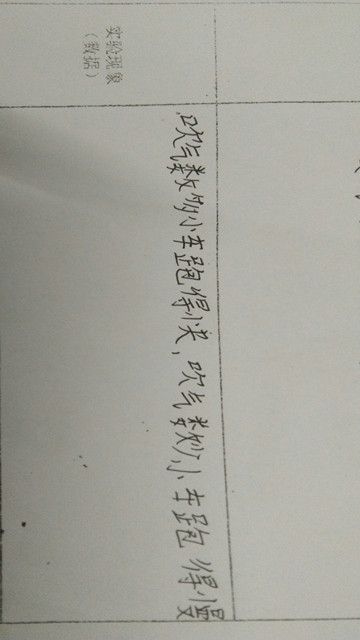 实验现象
（数据）
吹气数多小车跑得快，吹气数少，小车跑得慢